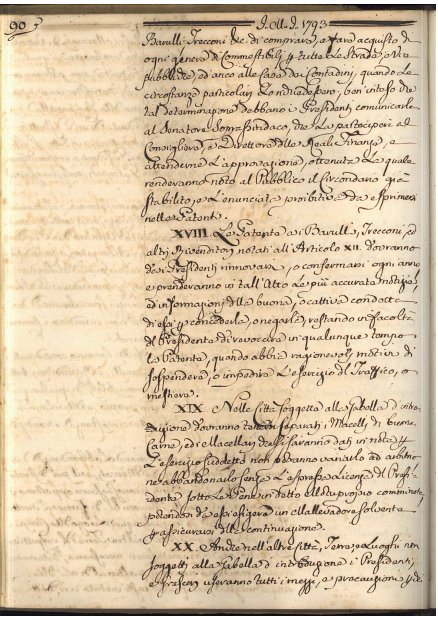 90 J.M.J. 1793
Barulli Trecconi &c. di comprare, e fare acquisto di
ogni genere di Commestibili p tutte Le Strade, e Vie
pubbliche, ed anco alle Case dei Contadini, quando Le
circostanze particolari Lo richiedessero, ben inteso che
tal determinazione debbano i Presidenti comunicarla
al Senatore Soprassindaco, che La partecipera al
Consigliere, e Direttore delle Reali Finanze, e
attenderne L'approvazione, ottenuta La quale
renderanno noto al Pubblico il Circondario già
stabilito, e L'enunciata proibitiva da esprimersi
nelle Patenti.
XVIII. Le Patenti ai Barulli, Trecconi, ed
altri Rivenditori notati all'Articolo XII. dovranno
dai Presidenti rinnovarsi, o confermarsi ogni anno
e prenderanno in tall'Atto Le più accurate notizie,
ed informazioni della buona, o cattiva condotta
di essi p concederla, o negarla, restando in facoltà
del Presidente di revocare in qualunque tempo
La Patente, quando abbia ragionevoli motivi di
sospendere, o impedire L'esercizio del Traffico, o
mestiere.
XIX. Nelle Città soggette alla Gabella d'intro-
duzione dovranno tenersi separati i Macelli di buona
Carne, ed i Macellari che si saranno dati in nota p
L'esercizio suddetto non potranno variarlo ad arbitrio
ne abbandonarlo senza L'espressa Licenza del Presi-
dente sotto Le Pene in detto Editto proprio comminate,
potendosi da essi esigere un Mallevadore solvente
p assicurarsi della continuazione.
XX. Anche nell'altre Città, Terre, e Luoghi non
soggetti alla Gabella d'introduzione i Presidenti,
useranno tutti i mezzi, e precauzioni p